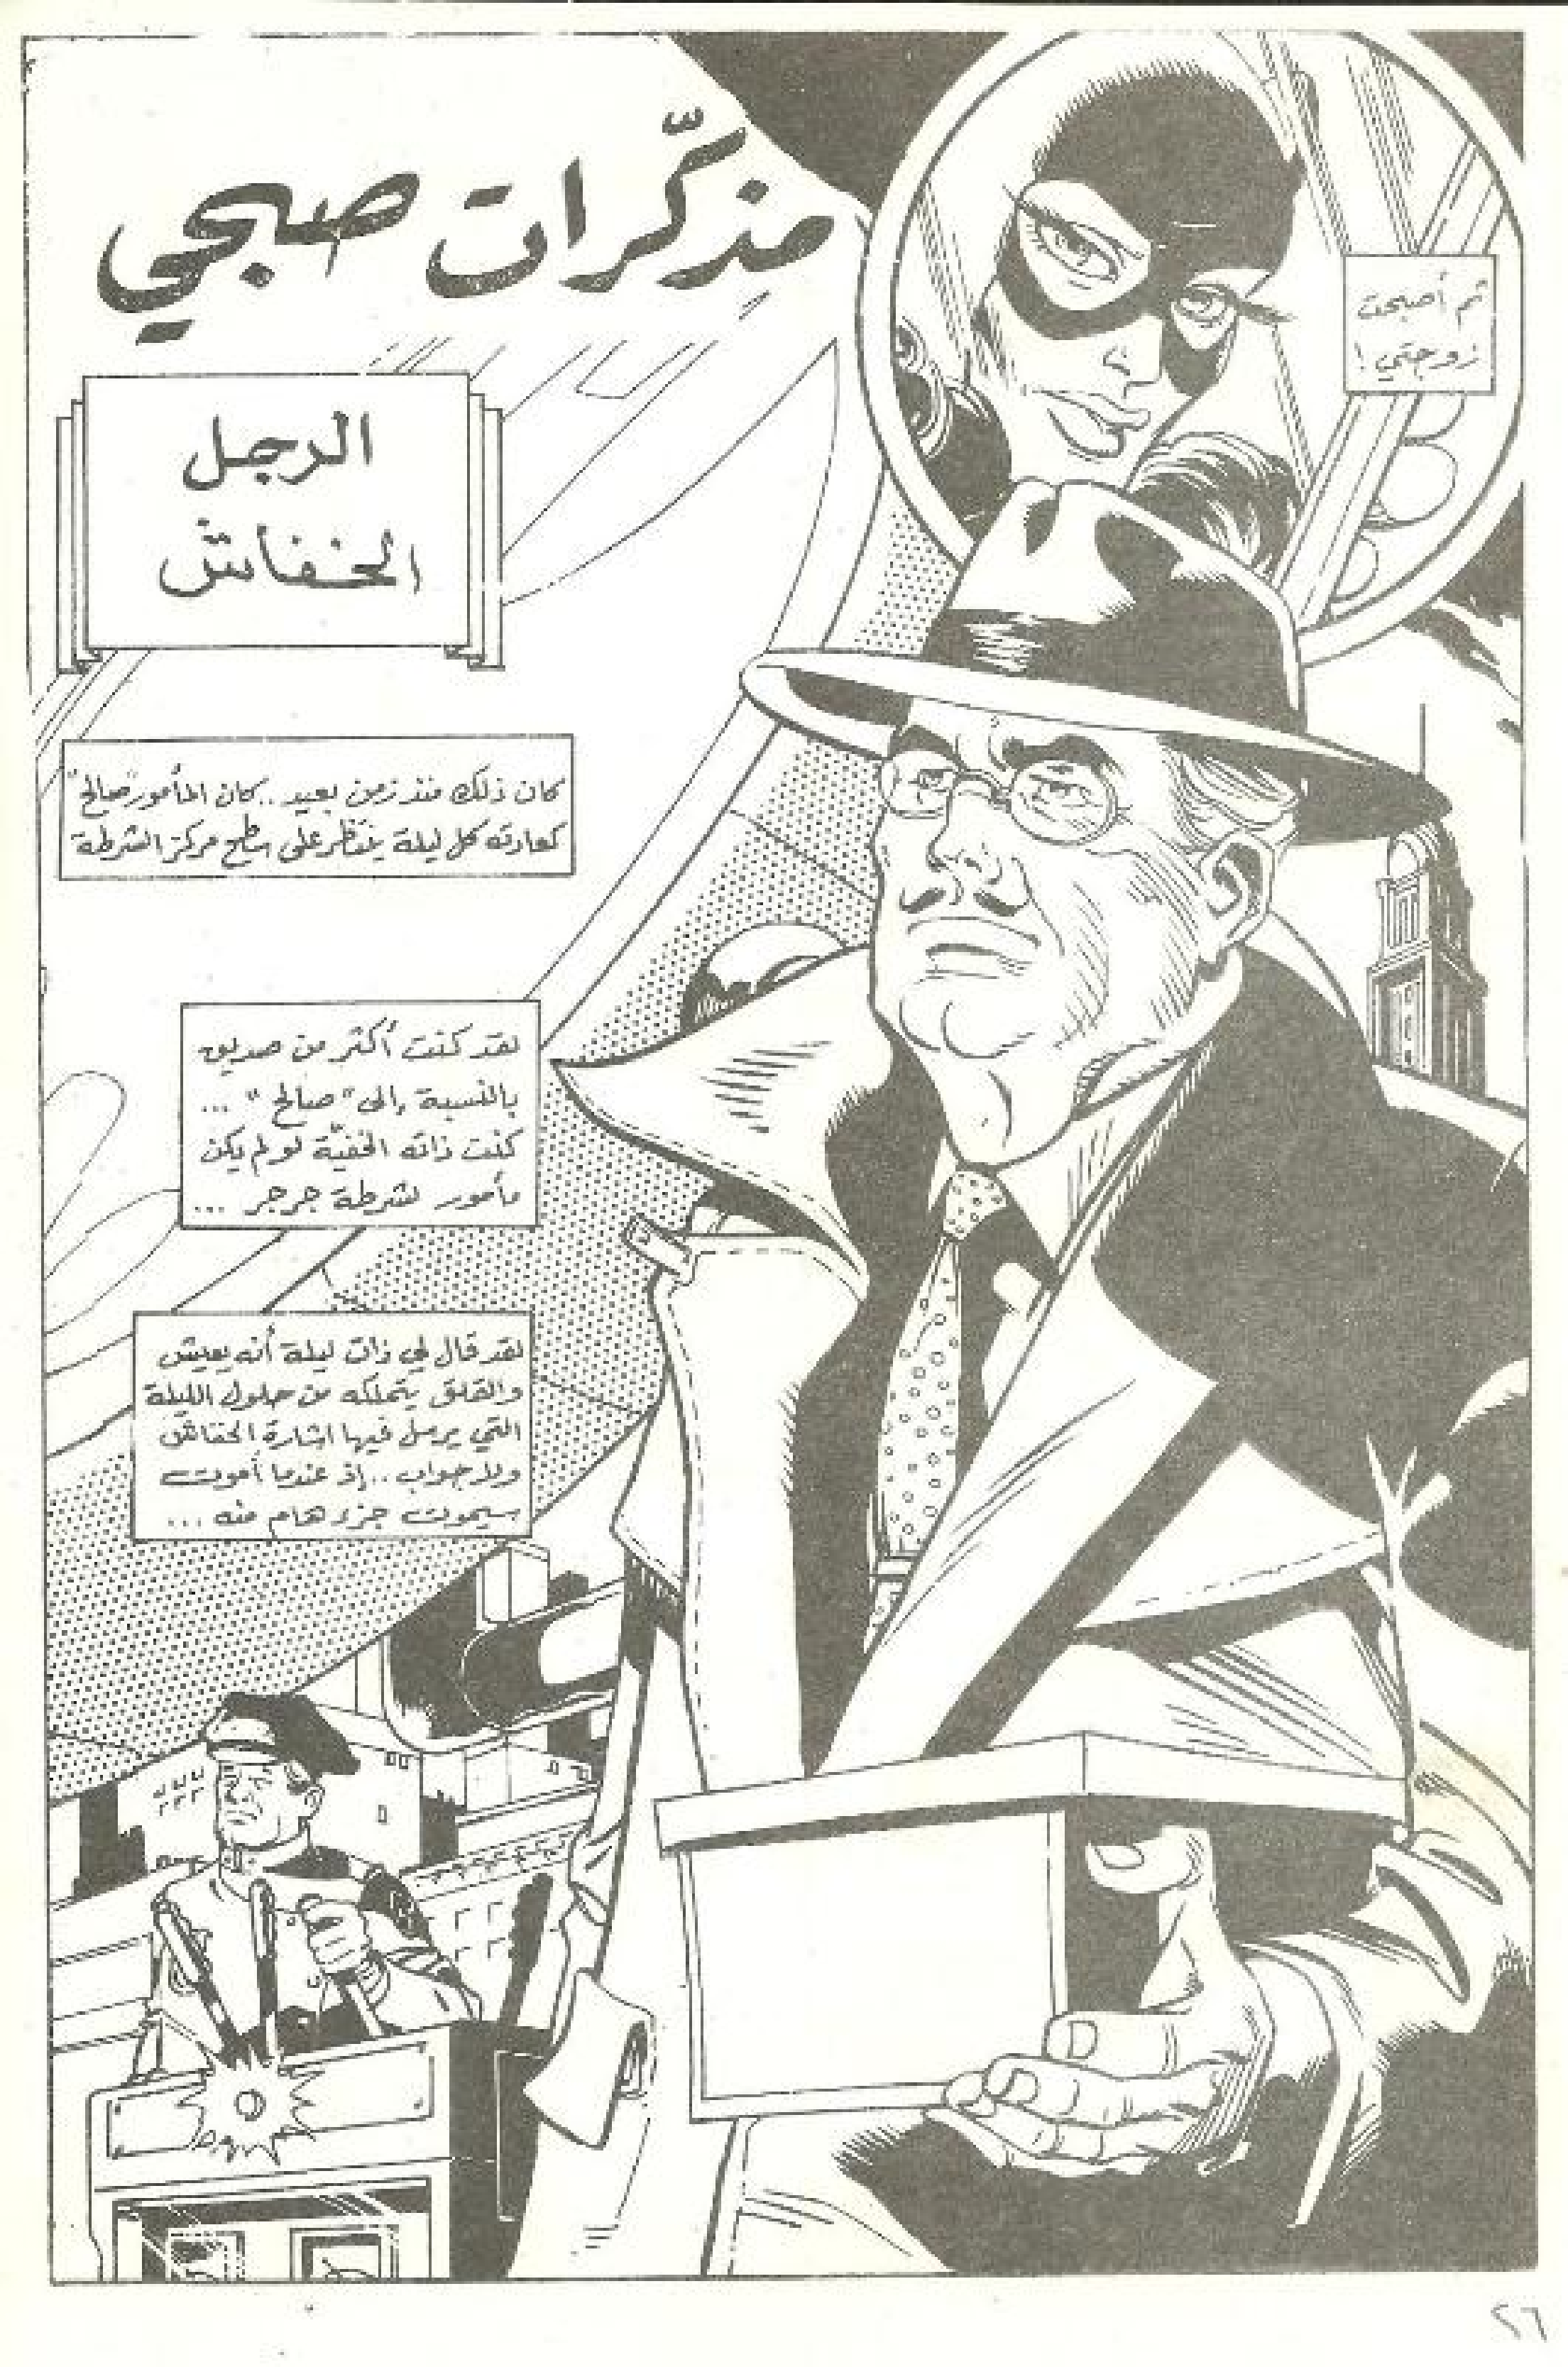 مذكّرات صبحي
ثم أصبحت
زوجتي !
الرجل
الخفاش
كان ذلك منذ زمن بعيد .. كان المأمور "صالح"
كعادته كل ليلة ينتظر على سطح مركز الشرطة
لقد كنت أكثر من صديق
بالنسبة إلى "صالح" ...
كنت ذاته الخفيّة لو لم يكن
مأمور لشرطة جرجر ...
لقد قال لي ذات ليلة أنه يعيش
والقلق يتملكه من حلول الليلة
التي يرسل فيها اشارة الخفاش
ولا جواب .. إذ عندما أموت
سيموت جزء هام منه ...
٢٦